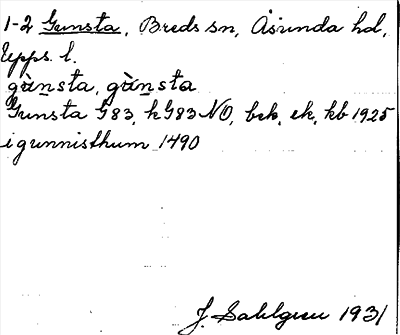 1-2 Gunsta, Breds sn, Åsunda hd,
Upps. l.
gùnsta, gùnsta
Gunsta G83, hG83 NO, bek, ek, kb 1925
i gunnisthum 1490
J. Sahlgren 1931